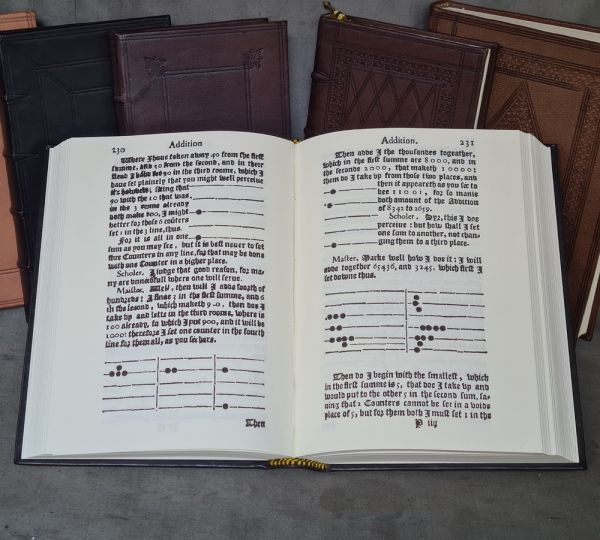 230
Addition
Where I haue taken away 40 from the first
summe, and 50 from the second, and in their
stead I haue set 90 in the third roome, which I
haue set plainely that you might well perceive
it: howbeit, seeing that
90 with the 10 that was
in the 3 roome already
doth make 100, I might
better for those 6 counters
set 1 in the 3 line, thus.
For it is all in one
sum as you may see, but it is best neuer to set
fiue Counters in any line, for that may be done
with one Counter in a higher place.
Scholer. I judge that good reason, for ma-
ny are vnneedfull where one will serue.
Maister. Well, then will I adde forth of
hundreds: I finde 3 in the first summe, and 6
in the second, which maketh 900, then doe I
take vp and sette in the third roome, where is
100 already, to which I put 900, and it will be
1000: therefore I set one counter in the fourth
line for them all, as you see here.
Then
Addition.
231
Then adde I the thousandes togeather,
which in the first summe are 8000, and in
the seconde 2000, that maketh 10000:
them do I take vp from those two places, and
then it appeareth as you see to
bee 11001, for so manie
doth amount of the Addition
of 8342 to 2659.
Scholer. Syr, this I doe
perceiue: but how shall I set
one sum to another, not chan-
ging them to a third place.
Master. Marke well how I doe it: I will
adde together 65436, and 3245, which first I
set downe thus.
Then do I begin with the smallest, which
in the first summe is 5, that doe I take vp and
would put to the other 5 in the second sum, sa-
uing that 2 Counters cannot be set in a voide
place of 5, but for them both I must set 1 in the
P iiij